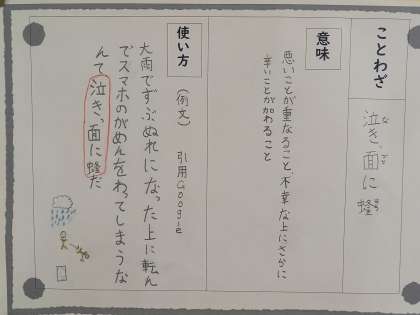 ことわざ
泣き面に蜂
な
つら
はち
意味
悪いことが重なること、不幸な上にさらに
辛いことが加わること
使い方
(例文)
引用Google
大雨でずぶぬれになった上に転ん
でスマホのがめんをわってしまうな
んて泣きっ面に蜂だ